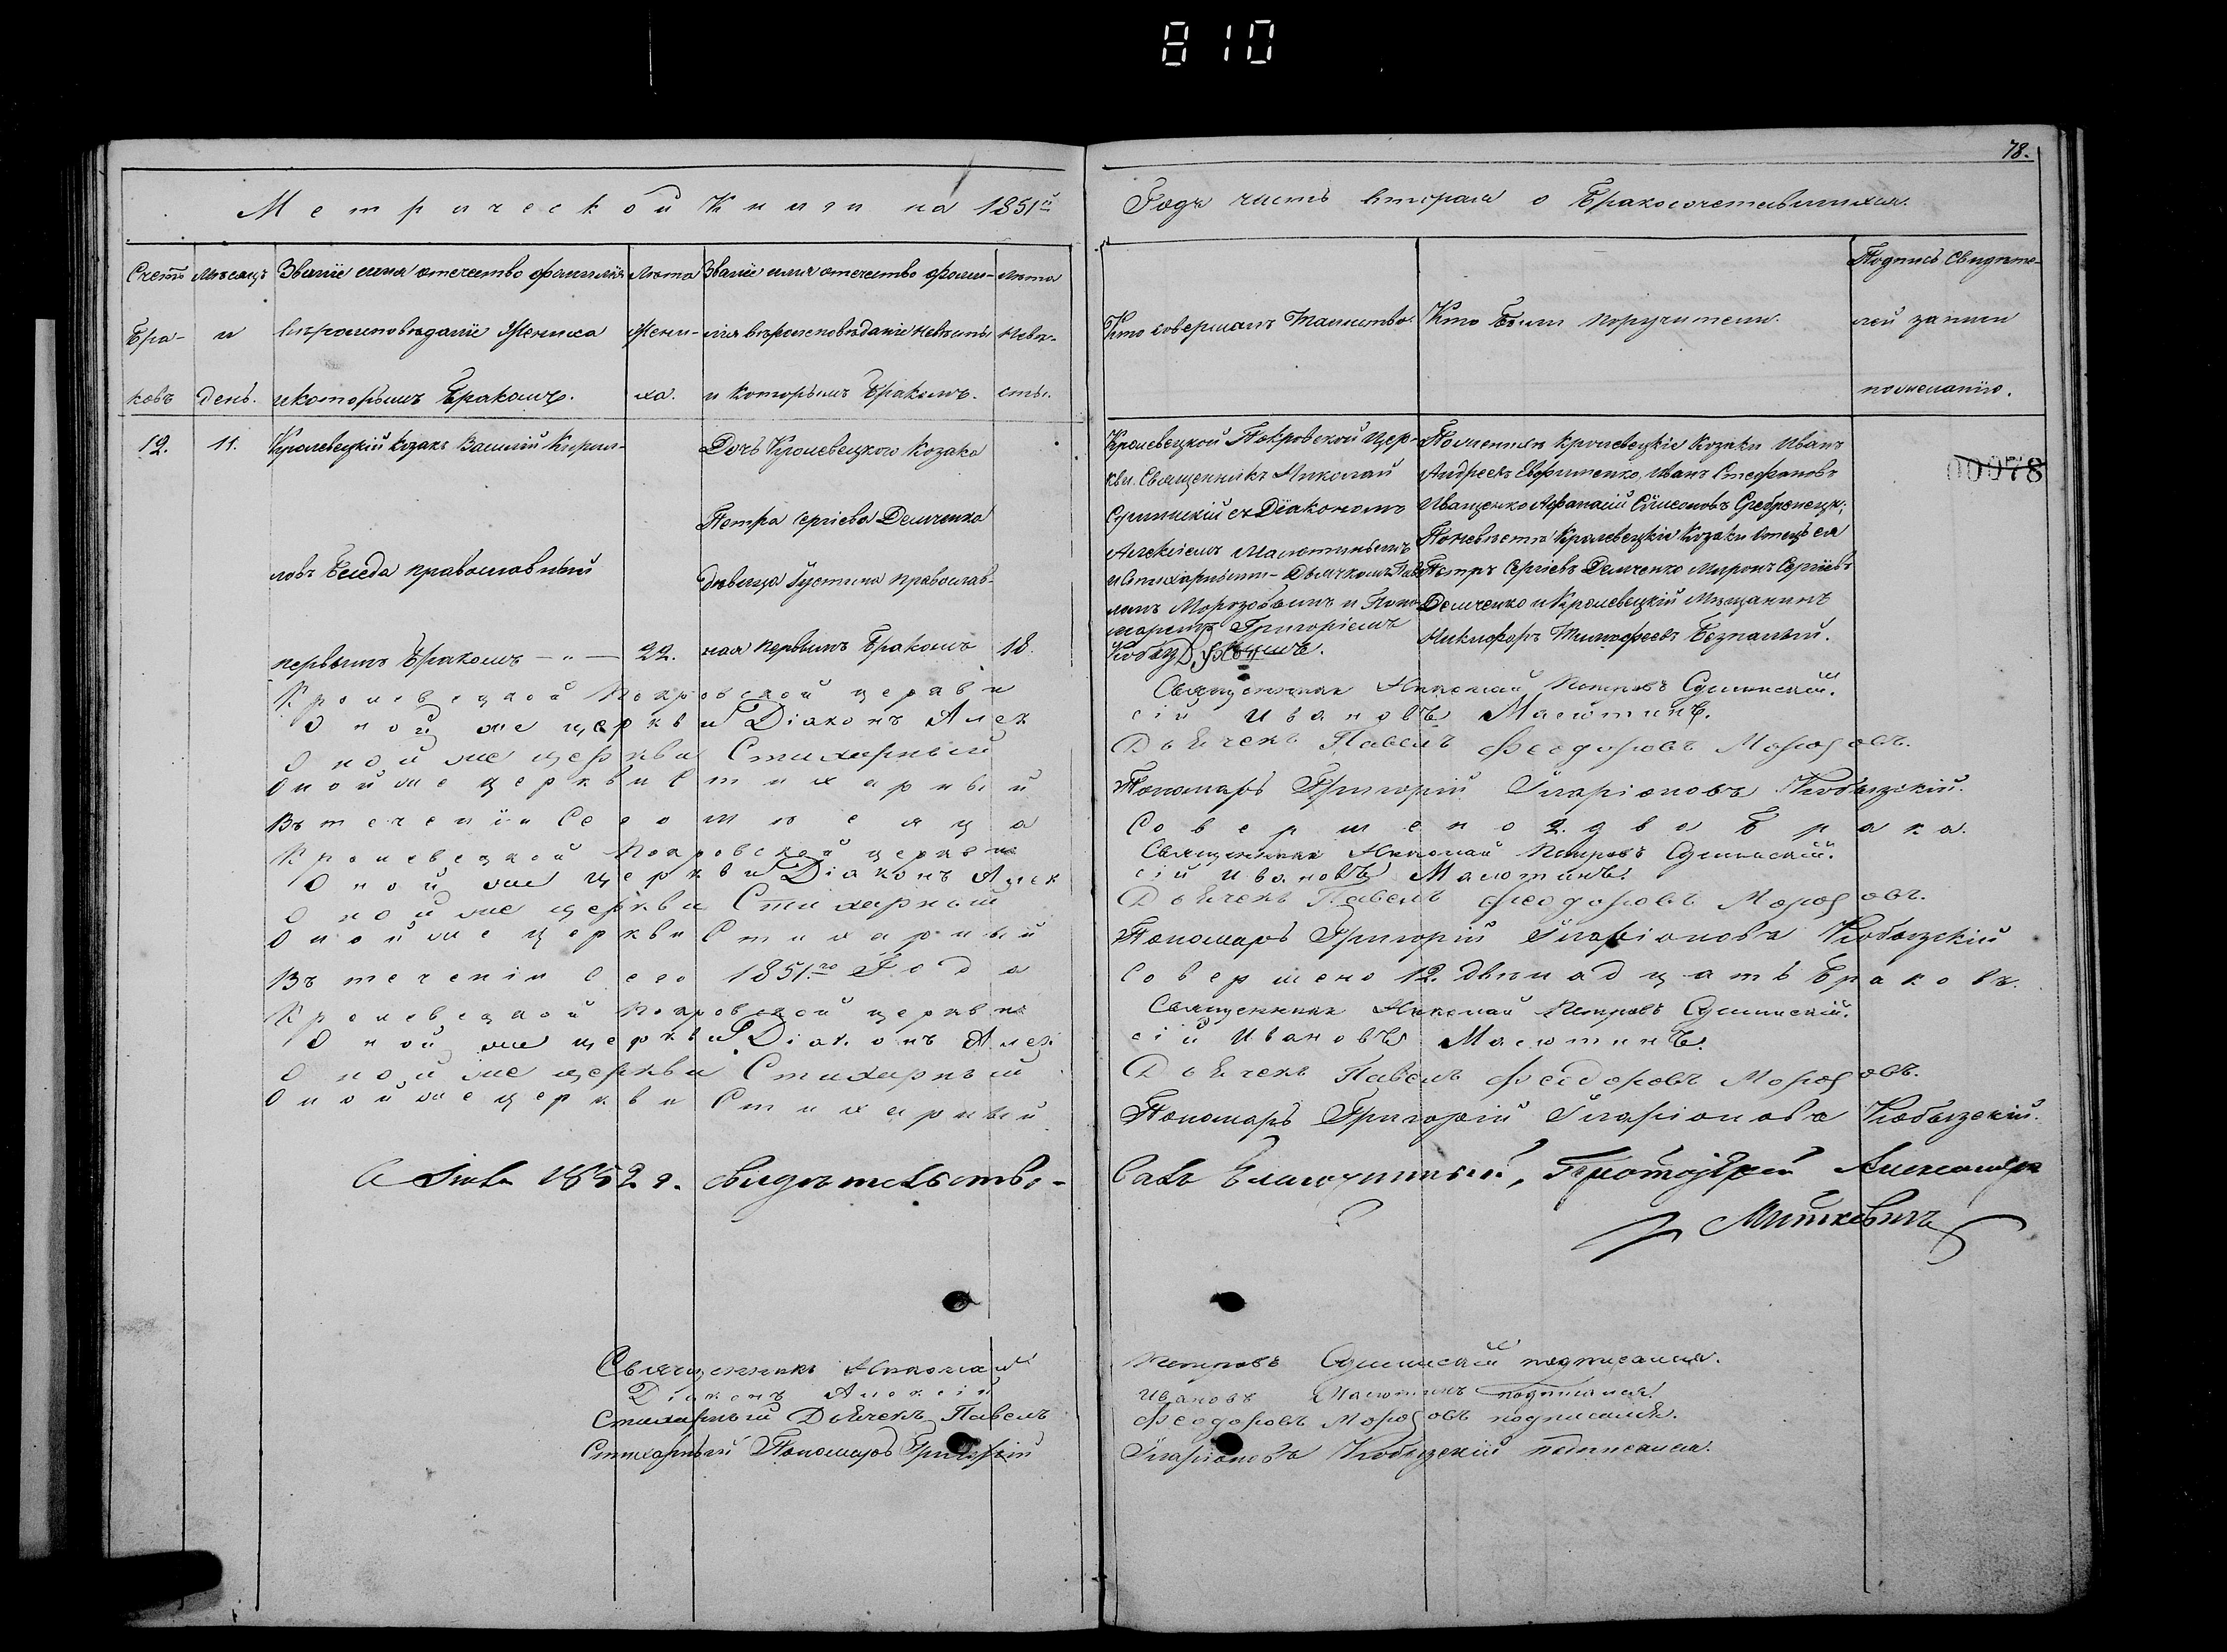 810
78.
Метрической Книги на 1851й
Годъ часть вторая о Бракосочетавшихся.
Счетъ Бра-ковъ
Мѣсяцъ и день.
Званіе имя отечество фамилія
вѣроисповѣданіе Жениха
и которымъ бракомъ.
Лѣта Жени-ха.
Званіе имя отечество фами-
лія вѣроисповѣданіе невѣсты
и которымъ бракомъ.
Лѣта невѣ-сты.
Кто совершалъ Таинство.
Кто были поручители.
Подпись свидѣте-
лей записи
по желанію.
12.
11.
Кролевецкій козакъ Василій Кирил-
ловъ Беседа православный
первымъ бракомъ — „ —
22.
Дочь Кролевецкого Козака
Петра Сергіева Демченка
дѣвица Іустина православ-
ная первымъ бракомъ
18.
Кролевецкой Покровской Цер-
кви Священникъ Николай
съ Діакономъ
Алексіемъ Малютинымъ
и Стихарными - Дьячкомъ Пав-
ломъ Морозовымъ и Поно-
маремъ Григоріемъ
По женихѣ Кролевецкіе Козаки Иванъ
Андреевъ Евфименко, Иванъ Стефановъ
Иващенко Афанасій Сѵмеоновъ
По невѣстѣ Кролевецкіе Козаки Отецъ ея
Петръ Сергіевъ Демченко Миронъ Сергіевъ
Демченко и Кролевецкій Мѣщанинъ
Никифоръ Тимофеевъ Безпалый.
00078
Кролевецкой Покровской церкви Священникъ Николай Петровъ
Оной же церкви Діаконъ Алексій Ивановъ Малютинъ.
Оной же церкви Стихарный Дьячекъ Павелъ Феодоровъ Морозовъ.
Оной же церкви Стихарный Пономарь Григорій Иларіоновъ Кобызскій.
Въ теченіи Сего мѣсяца Совершено 2. два Брака.
Кролевецкой Покровской церкви Священникъ Николай Петровъ
Оной же церкви Діаконъ Алексій Ивановъ Малютинъ.
Оной же церкви Стихарный Дьячекъ Павелъ Феодоровъ Морозовъ.
Оной же церкви Стихарный Пономарь Григорій Иларіоновъ Кобызскій
Въ теченіи Сего 1851.го Года Совершено 12. двѣнадцать Браковъ.
Кролевецкой Покровской церкви Священникъ Николай Петровъ
Оной же церкви Діаконъ Алексій Ивановъ Малютинъ.
Оной же церкви Стихарный Дьячекъ Павелъ Феодоровъ Морозовъ.
Оной же церкви Стихарный Пономарь Григорій Иларіоновъ Кобызскій.
1852 г. свидѣтельство-
валъ Благочинный, Протоіерей Александръ
Миткевичъ
Священникъ Николай Петровъ подписался.
Діаконъ Алексій Ивановъ Малютинъ подписался.
Стихарный Дьячекъ Павелъ Феодоровъ Морозовъ подписался.
Стихарный Пономарь Григорій Иларіоновъ Кобызскій подписался.